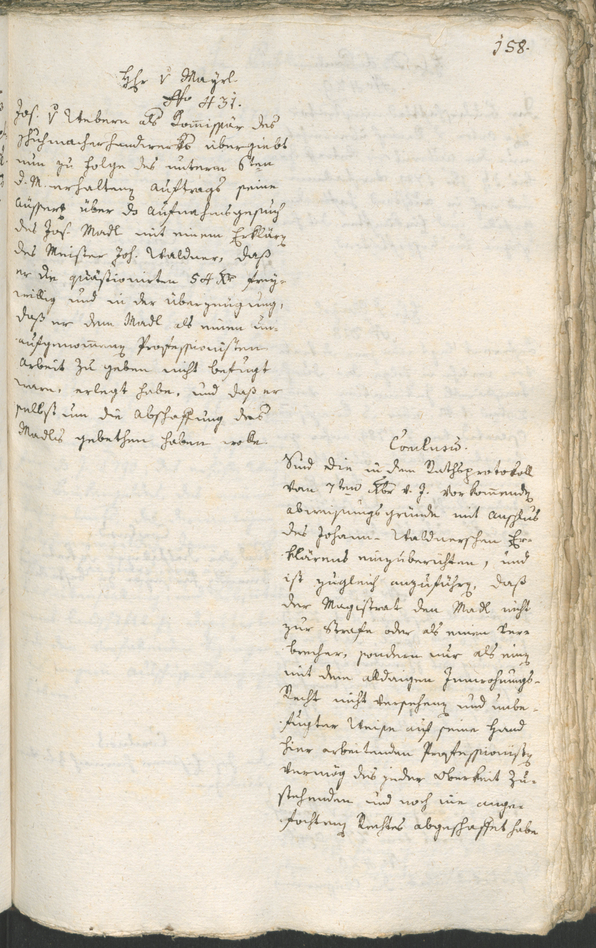 158.
Hhr v Mayrl.
No 431.
Jos. v Webern als Kommissär des
Schuhmacherhandwerks übergiebt
nun zu folge des unterm 6ten
d. M. erhalteng Auftrags seine
Äusserg über das Aufnahmsgesuch
des Jos. Madl mit einem Erklärg
des Meister Joh. Waldner, daß
er die quästionirten 54 Xr frey-
willig und in der Überzeugung,
daß er dem Madl als einen un-
aufgenommeng Professionisten
Arbeit zu geben nicht befugt
ware, erlegt habe, und daß er
selbst um die Abschaffung des
Madls gebethen haben wolle.
Conclusum.
Sind die in dem Rathsprotokoll
vom 7ten Xbr v. J. vorkommendg
abweisungsgründe mit Anschluß
des Johann Waldnerschen Er-
klärens einzuberichten, und
ist zugleich anzuführg, daß
der Magistrat den Madl nicht
zur Strafe oder als einen Ver-
brecher, sondern nur als eing
mit dem alldaigen Innwohnungs-
Recht nicht verseheng und unbe-
fugter Weise auf seine Hand
hier arbeitenden Professionistg
vermög des jeder Oberkeit zu-
stehenden und noch nie ange-
fochteng Rechtes abgeschaffet habe